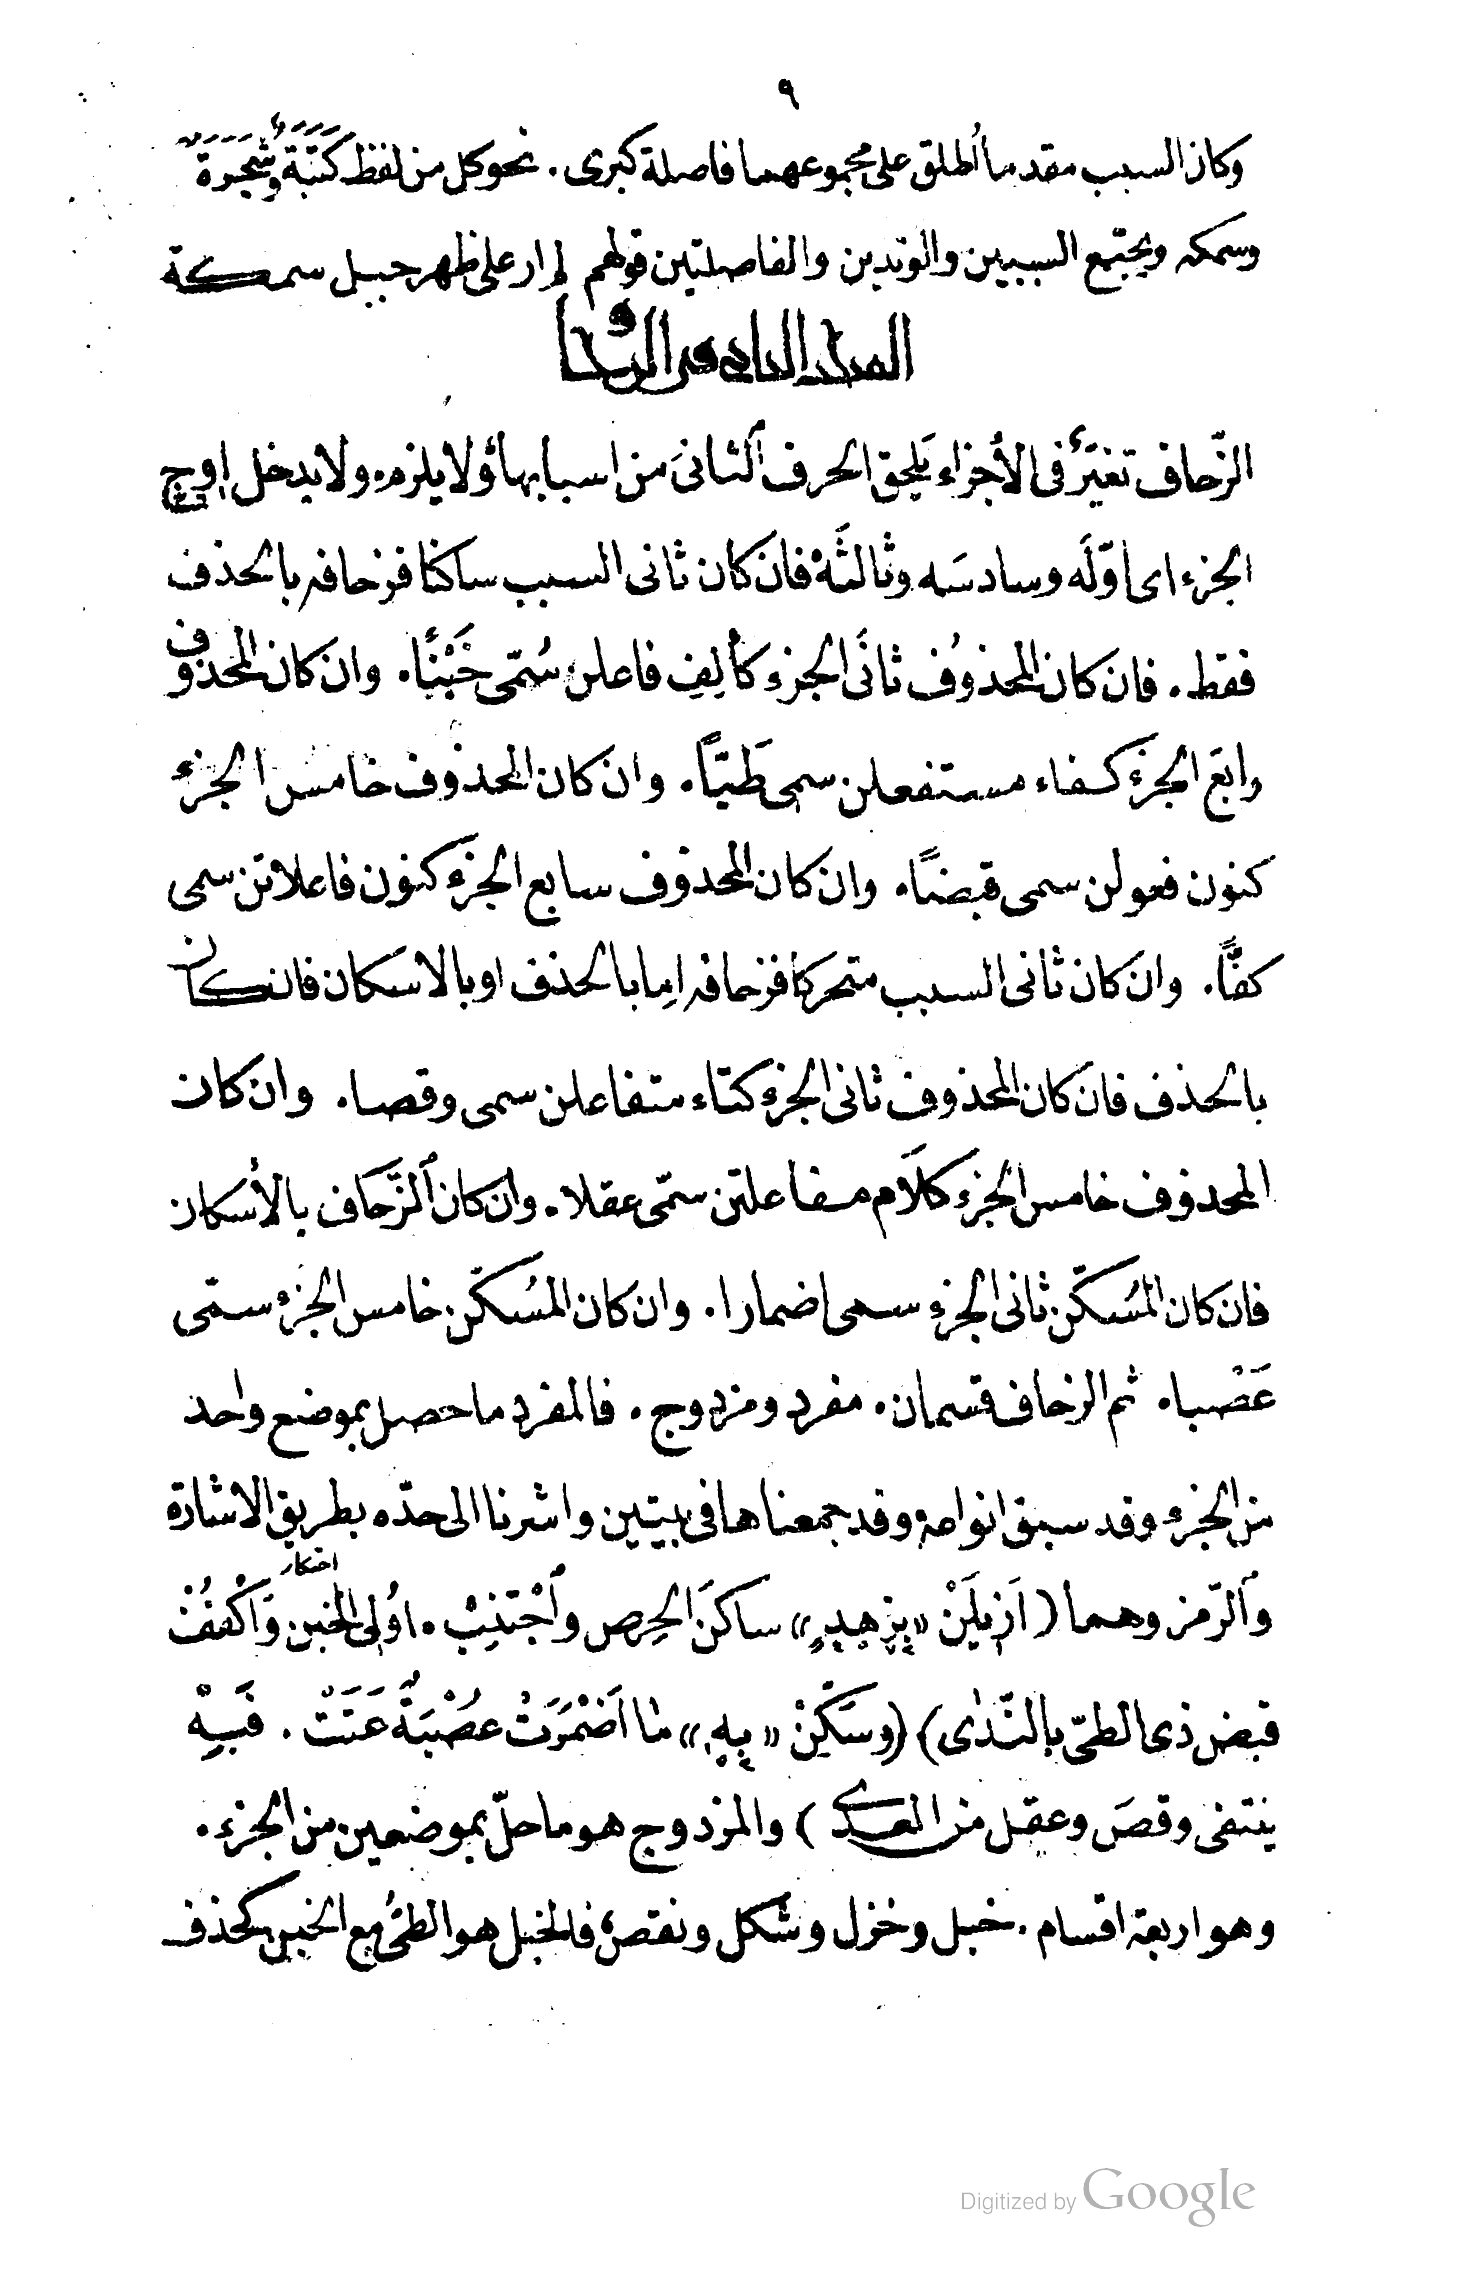 ٩
وكان السبب مقدما أُطلق على مجموعهما فاصلة كبرى. نحو كل من لفظ كَتَبَةٌ وشَجَرَةٌ
وسمكه ويجتمع السببين والوتدين والفاصلتين قولهم لم ار على ظهر جبل سمكة
فى الزحاف
الزّحاف تغيّرٌ فى الأجزاء يَلحق الحرف ٱلثانىَ من اسبابها ولا يلزمه ولا يدخل اوج
الجزء اى اوّلَه وسادسَه وثالثَهْ فان كان ثانى السبب ساكنا فزحافه بالحذف
فقط. فان كان المحذوُف ثانَى الجزء كألِفِ فاعلن سُمّى خَبْنًا. وان كان المحذوف
رابعَ الجزءَ كفاء مستفعلن سمى طَيًّا. وان كان المحذوف خامس الجزء
كنون فعولن سمى قبضًا. وان كان المحذوف سابع الجزء كنون فاعلاتن سمى
كفًّا. وان كان ثانى السبب متحركا فزحافه اما بالحذف او بالاسكان فان كان
بالحذف فان كان المحذوف ثانى الجزء كتاء متفاعلن سمى وقصا. وان كان
المحذوف خامس الجزء كلَام مفاعلتن سمّى عقلا. وان كان ٱلزّحَاف بالأسكان
فان كان المُسَكّن ثانى الجزء سمى اضمارا. وان كان المسَكّن خامس الجزء سمّى
عَصْبا. ثم الزحاف قسمان. مفرد ومزدوج. فالمفرد ما حصل بموضع واحد
من الجزء وقد سبق انواعه وقد جمعناها فى بيتين واشرنا الى حدّه بطريق الاشارة
احتكار
وٱلرّمز وهما (اَزيلَنْ «بزهد» ساكنَ الحِرص وٱجْتَنِبْ. اوُلى الخبن وَاكْفُفْ
قبض ذى الطىّ بالنّدٰى) (وسَكّنْ «بهِ» ما اَضْمَرَتْ عُصْبَةٌ عَنَتْ. فَبِهْ
ينتفى وقصَ وعقل من العدى) والمزدوج هو ما حلّ بموضعين من الجزء.
وهو اربعة اقسام. خبل وخزل وشكل ونقص فالخبل هو الطىُ مع الخبن كحذف
Digitized by Google